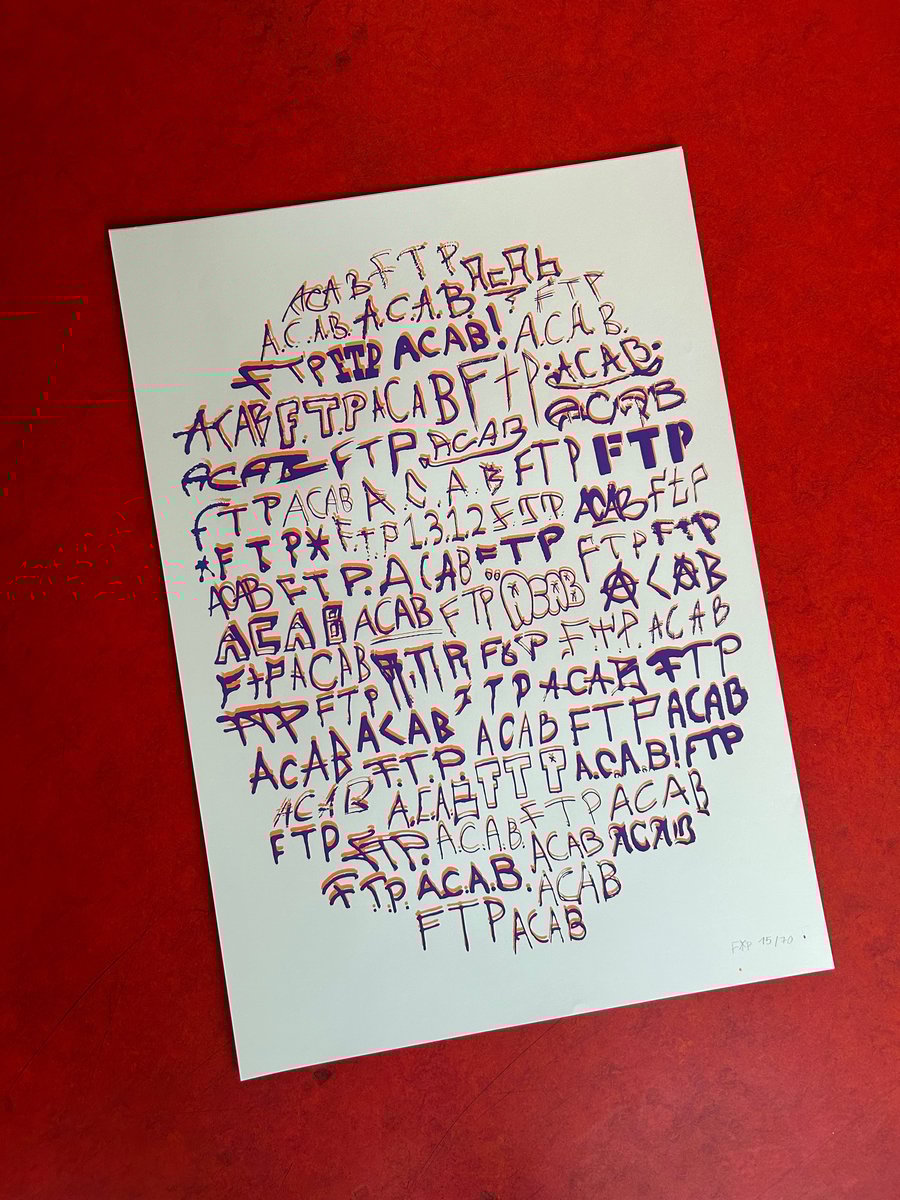 ACAB FTP ACAb
A.C.AB. A.C.A.B. FTP
FTP FTP ACAB! A.C.A.B.
ACAB F.T.P ACAB FTP ACAB
ACAB FTP ACAB ACAB
FTP ACAB A.C.A.B FTP FTP
*FTP* F.T.P 1.3.1.2 F.T.P ACAB FTP
ACAB FTP. ACAB FTP FTP FTP
ACAB ACAB FTP ACAB ACAB
FTP ACAB FTP FTP ACAB
FTP FTP FTP ACAB FTP
ACAB ACAB ACAB FTP ACAB
ACAB F.T.P. FTP A.C.A.B! FTP
FTP ACAB A.CAB FTP ACAB
FTP. A.C.A.B. ACAB ACAB
FTP A.C.A.B. ACAB
FTP ACAB
FXP 15/70